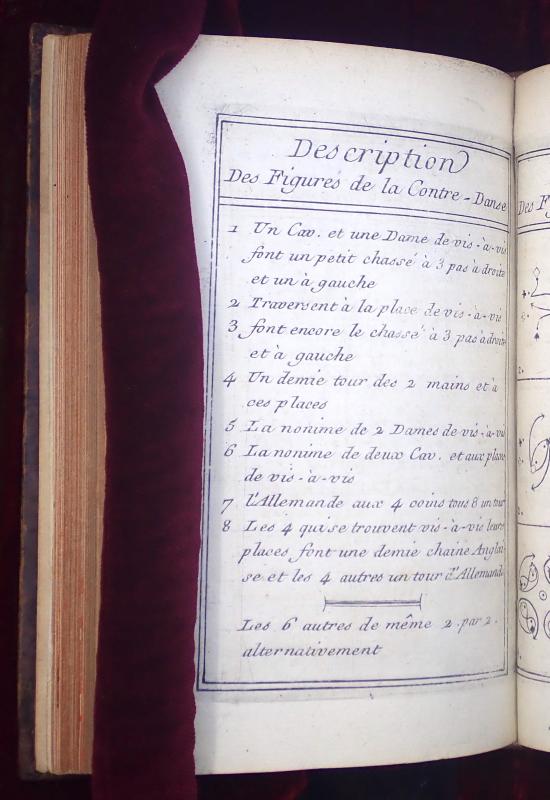 Description
Des Figures de la Contre-Danse
1 Un Cav. et une Dame de vis-à-vis
font un petit chassé à 3 pas à droite
et un à gauche
2 Traversent à la place de vis-à-vis
3 font encore le chassé à 3 pas à droite
et à gauche
4 Un demie tour des 2 mains et à
ces places
5 La nonime de 2 Dames de vis-à-vis
6 La nonime de deux Cav. et aux places
de vis-à-vis
7 l'Allemande aux 4 coins tous 8 un tour
8 Les 4 qui se trouvent vis-à-vis leurs
places font une demie chaine Anglai-
se et les 4 autres un tour d'Allemande
Les 6 autres de même 2 par 2.
alternativement
Des F